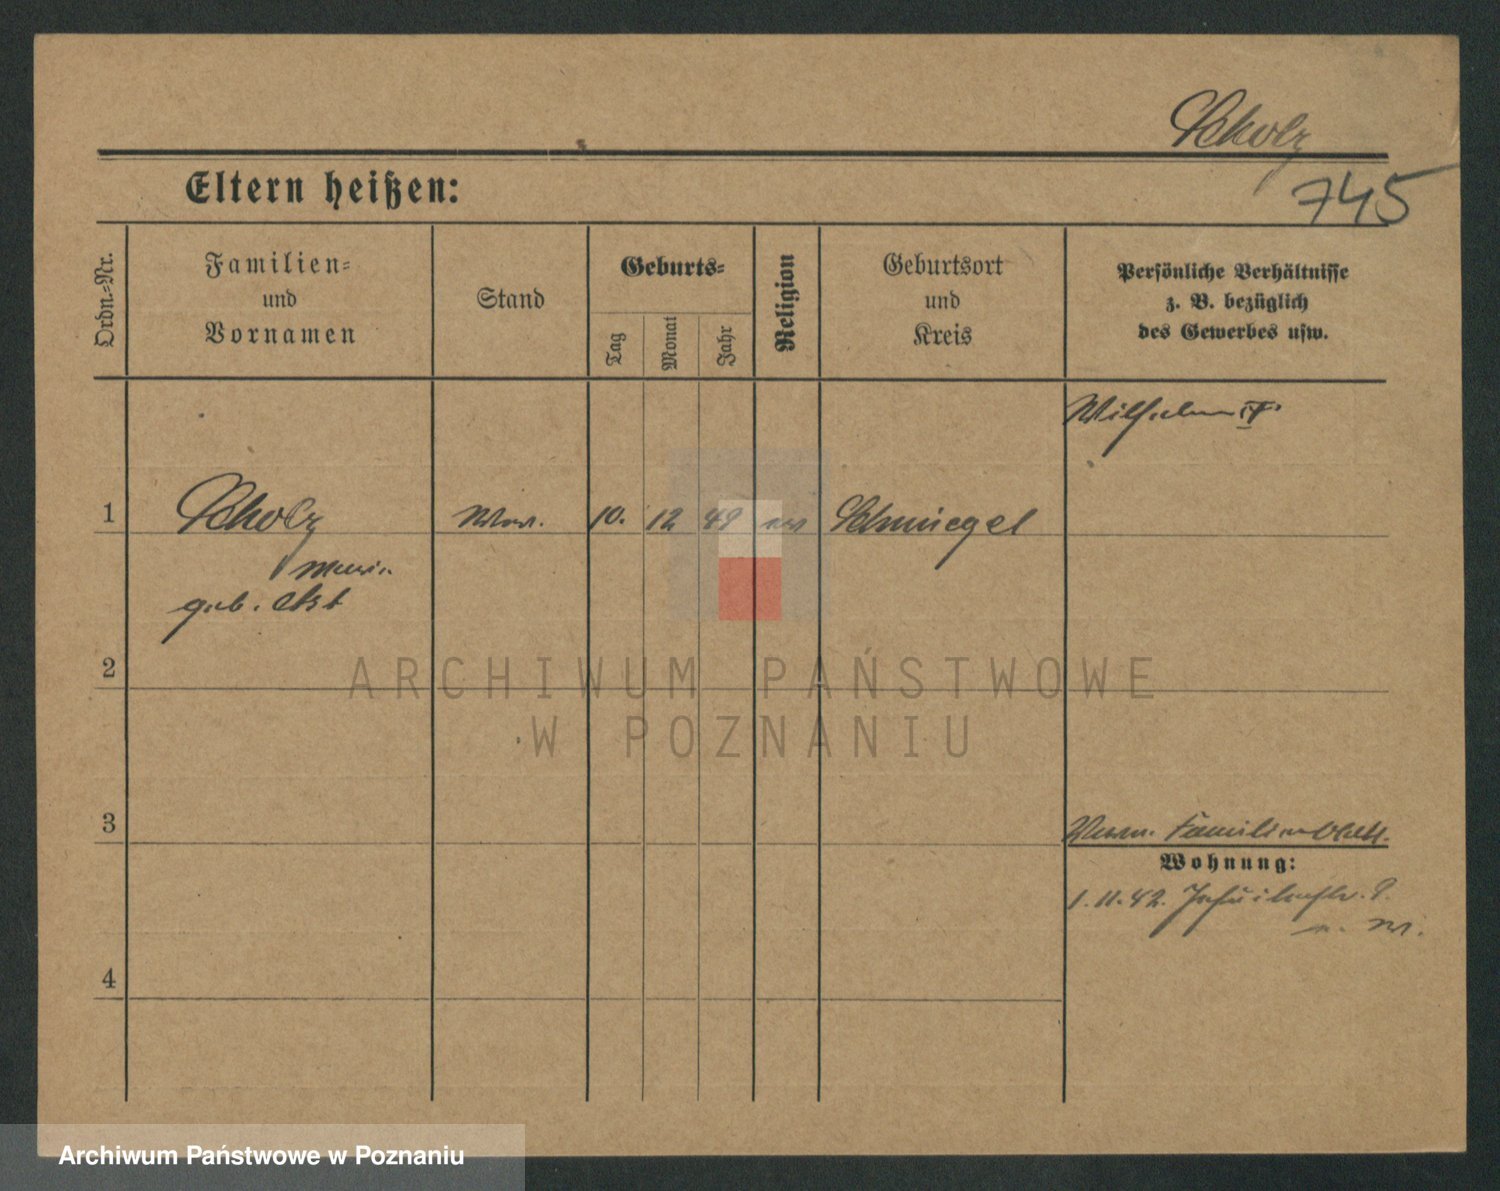 Scholz
745
Eltern heißen:
Ordn.-Nr.
Familien-
und
Vornamen
Stand
Geburts-
Tag
Monat
Jahr
Religion
Geburtsort
und
Kreis
Persönliche Verhältnisse
z. B. bezüglich
des Gewerbes usw.
Wilhelm
1
Scholz
10.
12
49
Schmiegel
geb.
2
ARCHIWUM PAŃSTWOWE
W POZNANIU
3
Wohnung:
1.11.42.
4
Archiwum Państwowe w Poznaniu